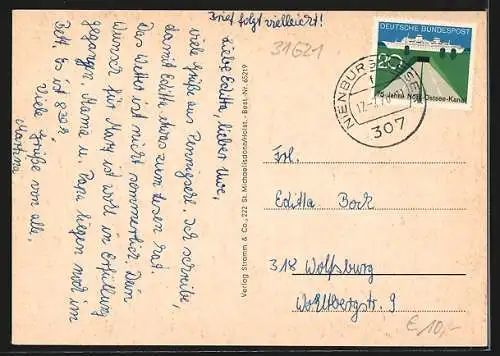 Brief folgt vielleicht!
Liebe Editta, lieber Uwe,
viele Grüße aus Pennigsehl. Ich schreibe,
damit Editta etwas zum lesen hat.
Das Wetter ist nicht sommerlich. Dein
Wunsch für Marx ist wohl in Erfüllung
gegangen. Mama u. Papa liegen noch im
Bett. Es ist 8 30 h.
Viele Grüße von allen,
Martina
Verlag Stramm & Co., 222 St. Michaelisdonn/Holst. · Best.-Nr. 65219
31G21
DEUTSCHE BUNDESPOST
20
75 Jahre Nord-Ostsee-Kanal
NIENBURG WESER
307
Frl.
Editta Bock
318 Wolfsburg
Wohltbergstr. 9
€ 10,-